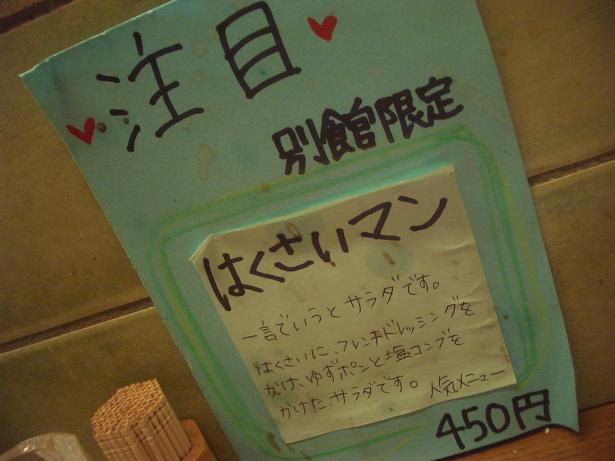 注目
別館限定
はくさいマン
一言でいうとサラダです。
はくさいに、フレンチドレッシングを
かけ、ゆずポンと塩コンブを
かけた、サラダです。 人気メニュー
450円